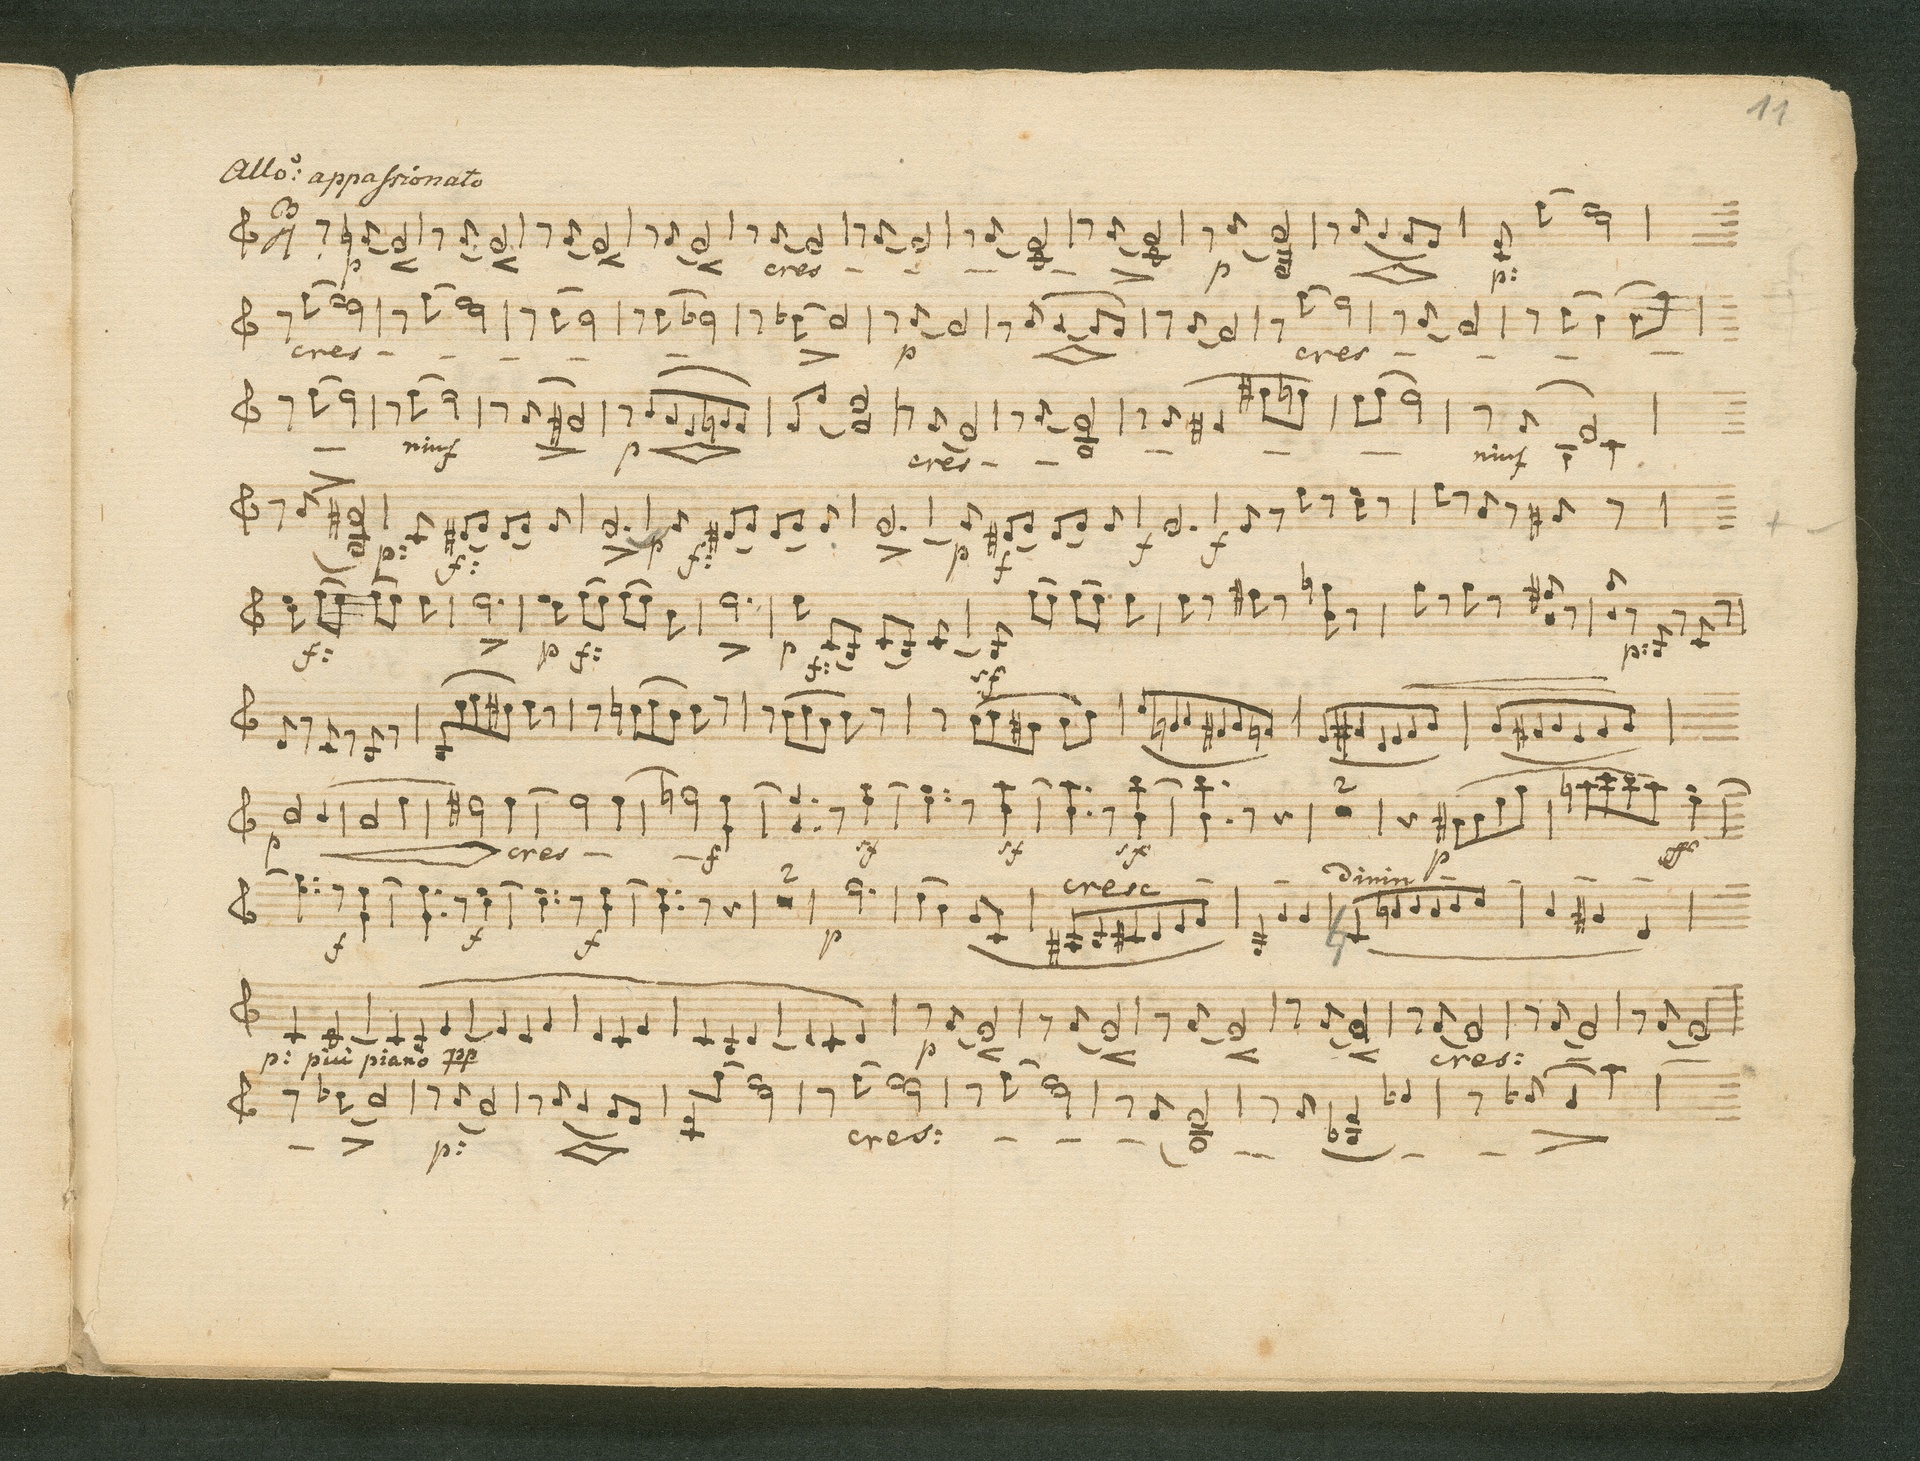 11
Allo: appassionato
p cres p p:
cres p cres
rinf p cres rinf
p: f: p f: p f f f
f: p f: p f: sf p:
p cres 2 f sf sf sf p sf
2 cresc dimin
f f f p
p: più piano pp p cres:
p: cres: